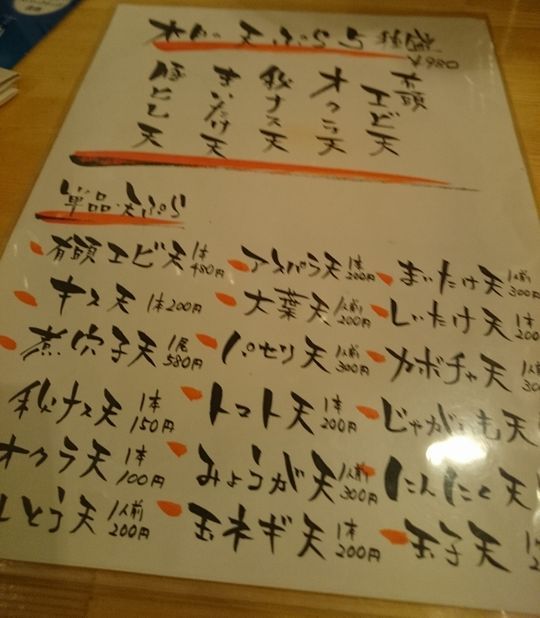 天ぷら5種盛
¥980
有頭エビ天
オクラ天
秋ナス天
まいたけ天
豚とじ天
単品・天ぷら
有頭エビ天 1本 480円
アスパラ天 1本 200円
まいたけ天 1人前 300円
キス天 1本 200円
大葉天 1人前 200円
しいたけ天 1本 200
煮穴子天 1尾 580円
パセリ天 1人前 300円
カボチャ天 1人前 300
秋ナス天 1本 150円
トマト天 1本 200円
じゃがいも天
オクラ天 1本 100円
みょうが天 1人前 300円
にんにく天
とう天 1人前 200円
玉ネギ天 1本 200円
玉子天